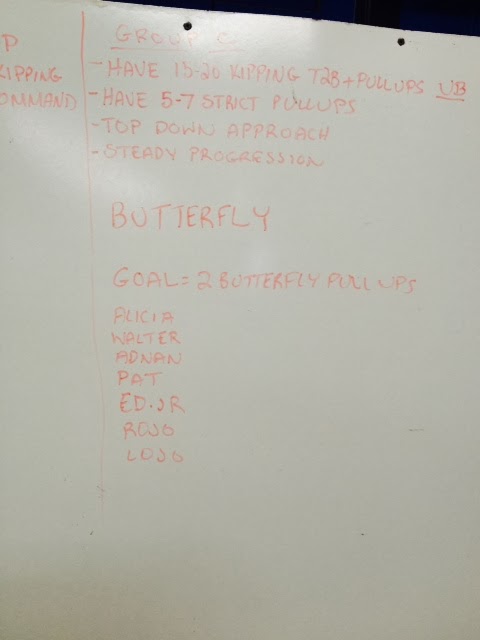 P
KIPPING
OMMAND
GROUP C
- HAVE 15-20 KIPPING T2B + PULLUPS UB
- HAVE 5-7 STRICT PULLUPS
- TOP DOWN APPROACH
- STEADY PROGRESSION
BUTTERFLY
GOAL = 2 BUTTERFLY PULL UPS
ALICIA
WALTER
ADNAN
PAT
ED.JR
ROJO
LOJO